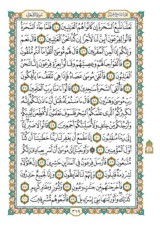 لَعَلَّنَا نَتَّبِعُ السَّحَرَةَ إِن كَانُوا هُمُ الْغَالِبِينَ ۝ فَلَمَّا جَاءَ السَّحَرَةُ
قَالُوا لِفِرْعَوْنَ أَئِنَّ لَنَا لَأَجْرًا إِن كُنَّا نَحْنُ الْغَالِبِينَ ۝ قَالَ نَعَمْ
وَإِنَّكُمْ إِذًا لَّمِنَ الْمُقَرَّبِينَ ۝ قَالَ لَهُم مُّوسَىٰ أَلْقُوا مَا أَنتُم مُّلْقُونَ
۝ فَأَلْقَوْا حِبَالَهُمْ وَعِصِيَّهُمْ وَقَالُوا بِعِزَّةِ فِرْعَوْنَ إِنَّا لَنَحْنُ
الْغَالِبُونَ ۝ فَأَلْقَىٰ مُوسَىٰ عَصَاهُ فَإِذَا هِيَ تَلْقَفُ مَا يَأْفِكُونَ
۝ فَأُلْقِيَ السَّحَرَةُ سَاجِدِينَ ۝ قَالُوا آمَنَّا بِرَبِّ الْعَالَمِينَ ۝
رَبِّ مُوسَىٰ وَهَارُونَ ۝ قَالَ آمَنتُمْ لَهُ قَبْلَ أَنْ آذَنَ لَكُمْ إِنَّهُ
لَكَبِيرُكُمُ الَّذِي عَلَّمَكُمُ السِّحْرَ فَلَسَوْفَ تَعْلَمُونَ لَأُقَطِّعَنَّ
أَيْدِيَكُمْ وَأَرْجُلَكُم مِّنْ خِلَافٍ وَلَأُصَلِّبَنَّكُمْ أَجْمَعِينَ ۝ قَالُوا
لَا ضَيْرَ إِنَّا إِلَىٰ رَبِّنَا مُنقَلِبُونَ ۝ إِنَّا نَطْمَعُ أَن يَغْفِرَ لَنَا رَبُّنَا
خَطَايَانَا أَن كُنَّا أَوَّلَ الْمُؤْمِنِينَ ۝ ۞ وَأَوْحَيْنَا إِلَىٰ مُوسَىٰ أَنْ أَسْرِ
بِعِبَادِي إِنَّكُم مُّتَّبَعُونَ ۝ فَأَرْسَلَ فِرْعَوْنُ فِي الْمَدَائِنِ حَاشِرِينَ
۝ إِنَّ هَٰؤُلَاءِ لَشِرْذِمَةٌ قَلِيلُونَ ۝ وَإِنَّهُمْ لَنَا لَغَائِظُونَ ۝ وَإِنَّا
لَجَمِيعٌ حَاذِرُونَ ۝ فَأَخْرَجْنَاهُم مِّن جَنَّاتٍ وَعُيُونٍ ۝ وَكُنُوزٍ وَمَقَامٍ
كَرِيمٍ ۝ كَذَٰلِكَ وَأَوْرَثْنَاهَا بَنِي إِسْرَائِيلَ ۝ فَأَتْبَعُوهُم مُّشْرِقِينَ ۝
٣٦٩